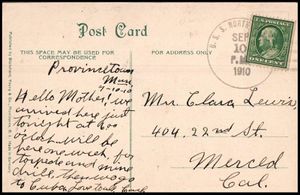 Post Card
THIS SPACE MAY BE USED FOR
CORRESPONDENCE
FOR ADDRESS ONLY
Provincetown
Mass
9-10-10
Hello Mother! we
arrived here just
tonight at 900
oclock will be
here one week, for
torpedo and mine
drill, then we go
to Cuba, Love to all
U.S.S. NORTH
SEP
10
P.M.
1910
U.S. POSTAGE
ONE CENT
Mrs. Clara Lewis
404, 22nd St.
Merced
Cal.